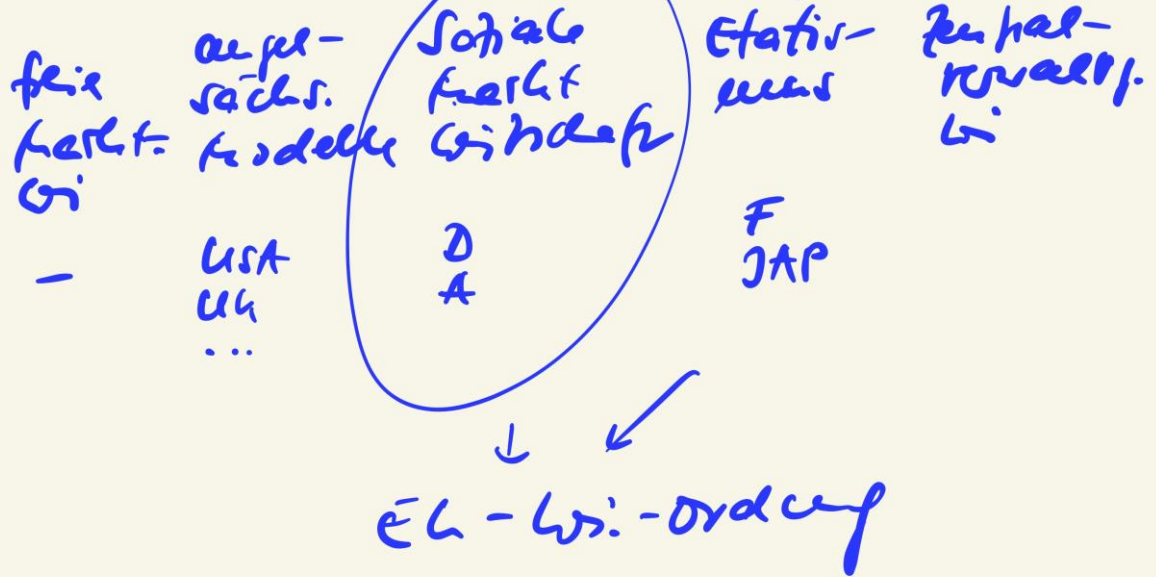 freie
Markt-
wi
—
angel-
sächs.
Modelle
USA
UK
...
Soziale
Markt
wirtschaft
D
A
Etatis-
mus
F
JAP
Zentral-
verwaltg.
wi
↓ ↙
EU-Wi.-Ordnung